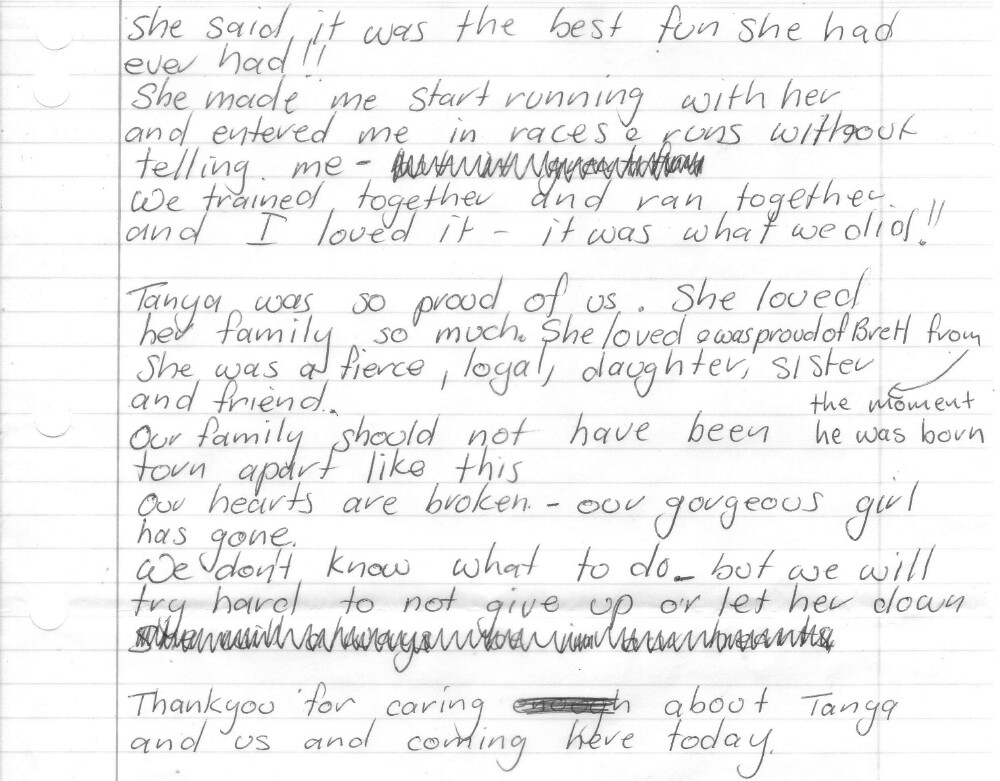 She said, it was the best fun she had
ever had!!
She made me start running with her
and entered me in races & runs without
telling me -
We trained together and ran together.
and I loved it - it was what we did!!
Tanya was so proud of us. She loved
her family so much. She loved & was proud of Brett from
the moment
he was born
She was a fierce, loyal, daughter, sister
and friend.
Our family should not have been
torn apart like this
Our hearts are broken - our gorgeous girl
has gone.
We don't know what to do - but we will
try hard to not give up or let her down
Thankyou for caring about Tanya
and us and coming here today.